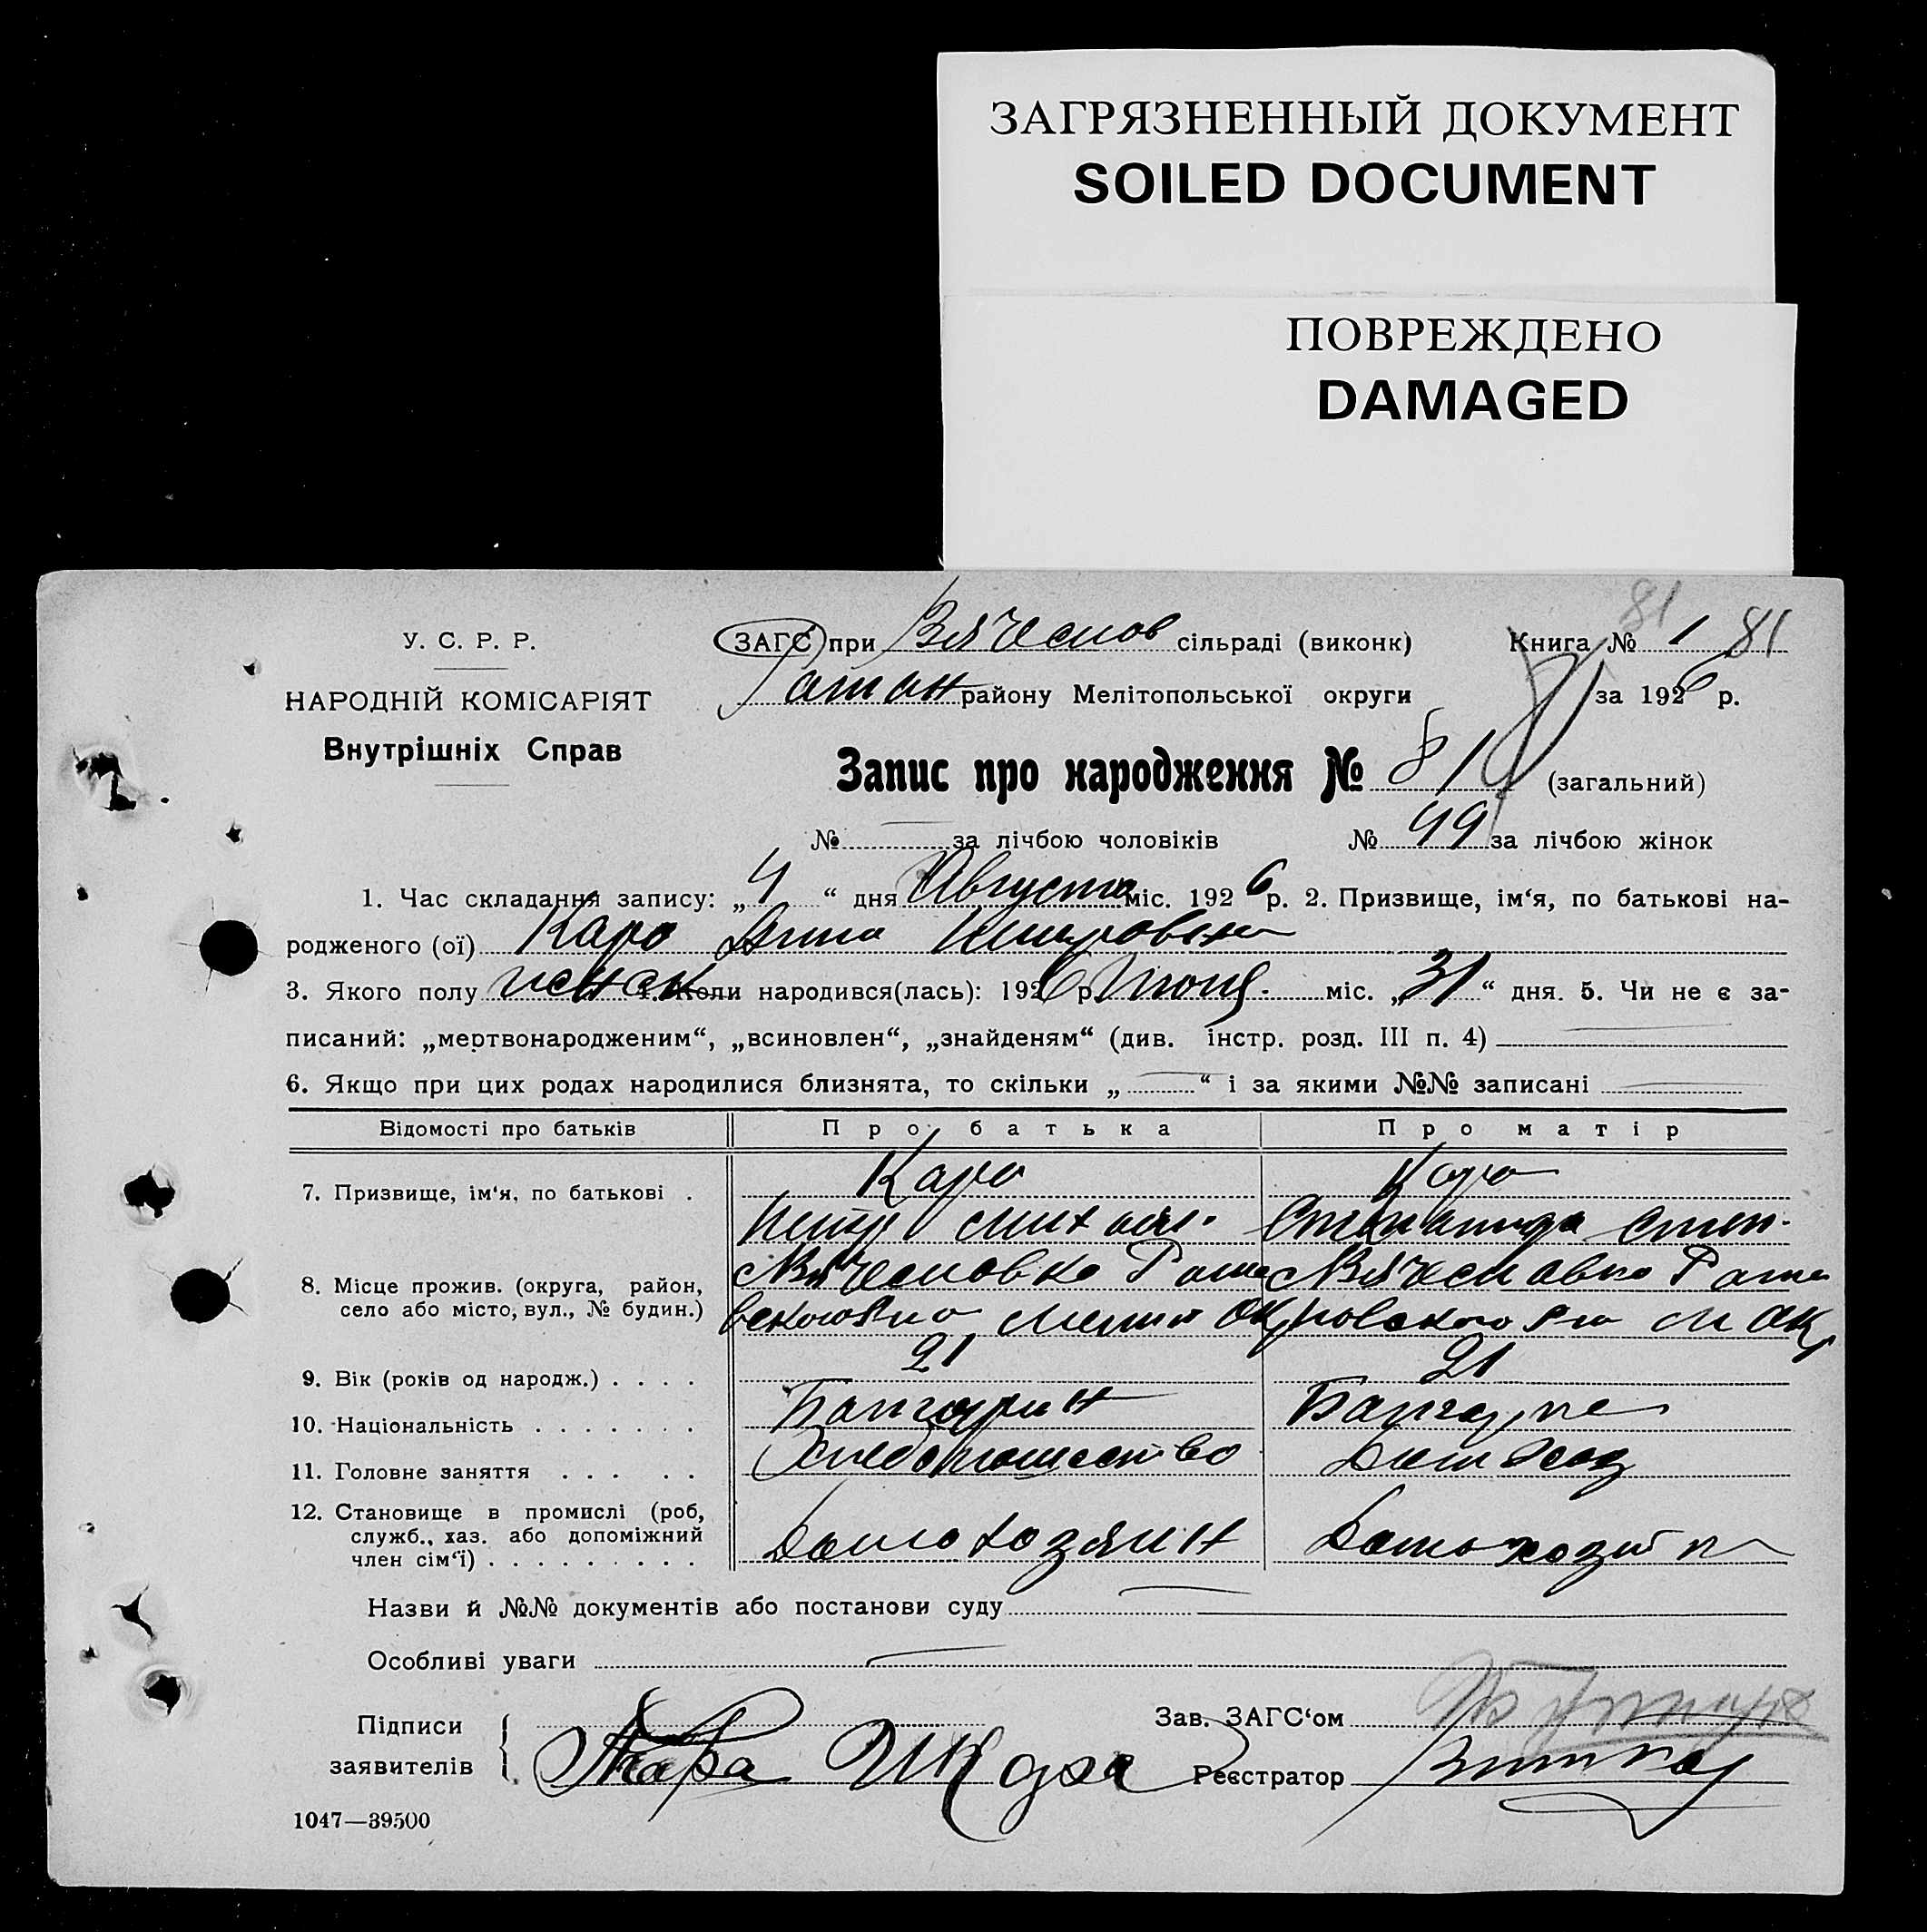 ЗАГРЯЗНЕННЫЙ ДОКУМЕНТ
SOILED DOCUMENT
ПОВРЕЖДЕНО
DAMAGED
81
У. С. Р. Р.
НАРОДНІЙ КОМІСАРІЯТ
Внутрішніх Справ
ЗАГС при Вячеслов сільраді (виконк) Книга № 1 81
району Мелітопольської округи за 1926 р.
Запис про народження № 81 (загальний)
№ за лічбою чоловіків № 49 за лічбою жінок
1. Час складання запису: „4“ дня Августа міс. 1926 р. 2. Призвище, ім‘я, по батькові на-
родженого (ої) Каро Анна Петровна
3. Якого полу женск 4. Коли народився(лась): 1926 р. Июля міс. „31“ дня. 5. Чи не є за-
писаний: „мертвонародженим“, „всиновлен“, „знайденям“ (див. інстр. розд. III п. 4)
6. Якщо при цих родах народилися близнята, то скільки „ “ і за якими №№ записані
Відомості про батьків Про батька Про матір
7. Призвище, ім‘я, по батькові . Каро Каро
Петр Михаил. Степ.
8. Місце прожив. (округа, район,
село або місто, вул., № будин.)
9. Вік (років од народж.) . . . . 21 21
10. Національність . . . . . . . Болгарин Болгарка
11. Головне заняття . . . . . Хлебопашество Домхоз
12. Становище в промислі (роб,
служб., хаз. або допоміжний
член сім‘ї) . . . . . . . . . Домохозяин
Назви й №№ документів або постанови суду
Особливі уваги
Підписи
заявителів
Зав. ЗАГС‘ом
Реєстратор
1047—39500